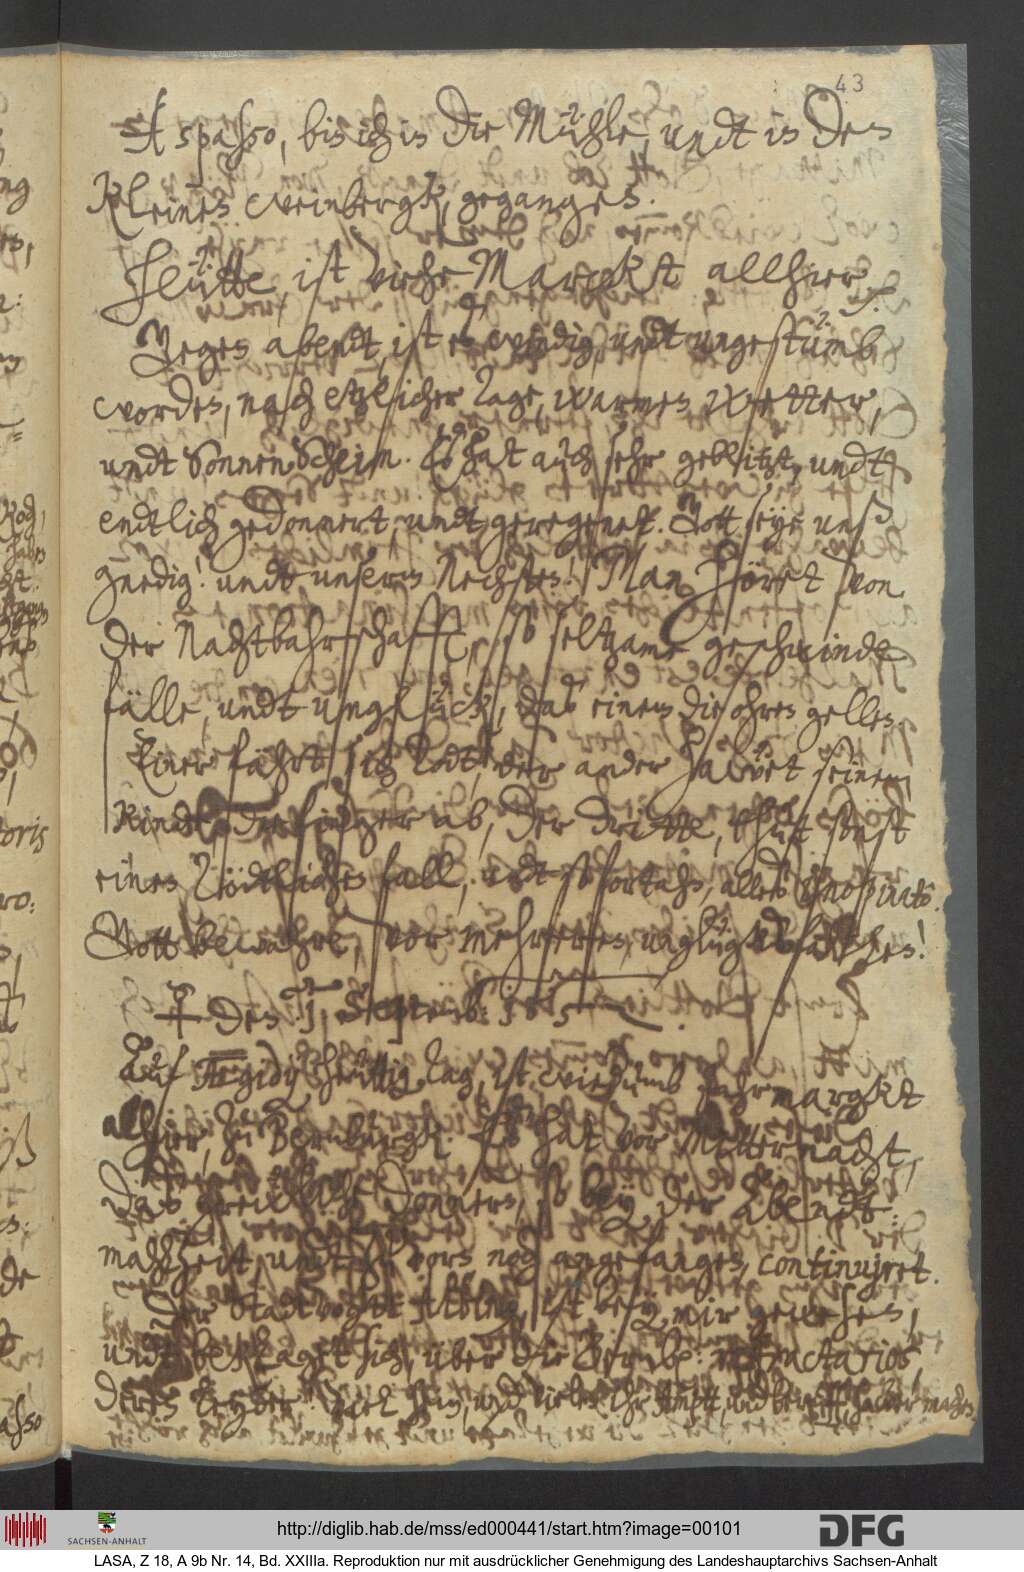 43
A spasso, bis ich in die Mühle, undt in den
Kleinen weinbergk, gegangen.
Heütte, ist viehe Marckt allhier.
Gegen abendt, ist es windig, undt ungestümb
worden, nach etzlicher Tage, warmen Wetter,
undt Sonnen Schein. Es hat auch sehr geblitzt, undt
endtlich gedonnert, undt geregenet. Gott seye unß
gnedig! undt unserm Nechsten! Man höret von
der Nachtbahrschafft, so seltzame geschwinde
fälle, undt unglück, das einem die ohren gellen.
Einer fährt sich Todt, der ander hawet seinem
Kinde die finger ab, der dritte, thut sonst
einen Tödtlichen fall, undt so fortahn, alles inopinato.
Gott bewahre, vor mehrerem, unglügksfällen!
♀ den 1. Septemb: 1651.
Auf Ægidij heüttig Tag, ist wiederumb Jahrmarckt
allhier, zu Bernburgk. Es hat vor Mitternacht,
das Donnern, so bey der Abendt:
mahlzeit, undt zuvorn noch angefangen, continuiret.
Der Stadtvogt ist bey mir gewesen,
undt beklaget sich, über die refractarios,
deren leyder! viel sein, und vielen ihr Ampt, und beruff, sawer machen.
http://diglib.hab.de/mss/ed000441/start.htm?image=00101
SACHSEN-ANHALT
DFG
LASA, Z 18, A 9b Nr. 14, Bd. XXIIIa. Reproduktion nur mit ausdrücklicher Genehmigung des Landeshauptarchivs Sachsen-Anhalt